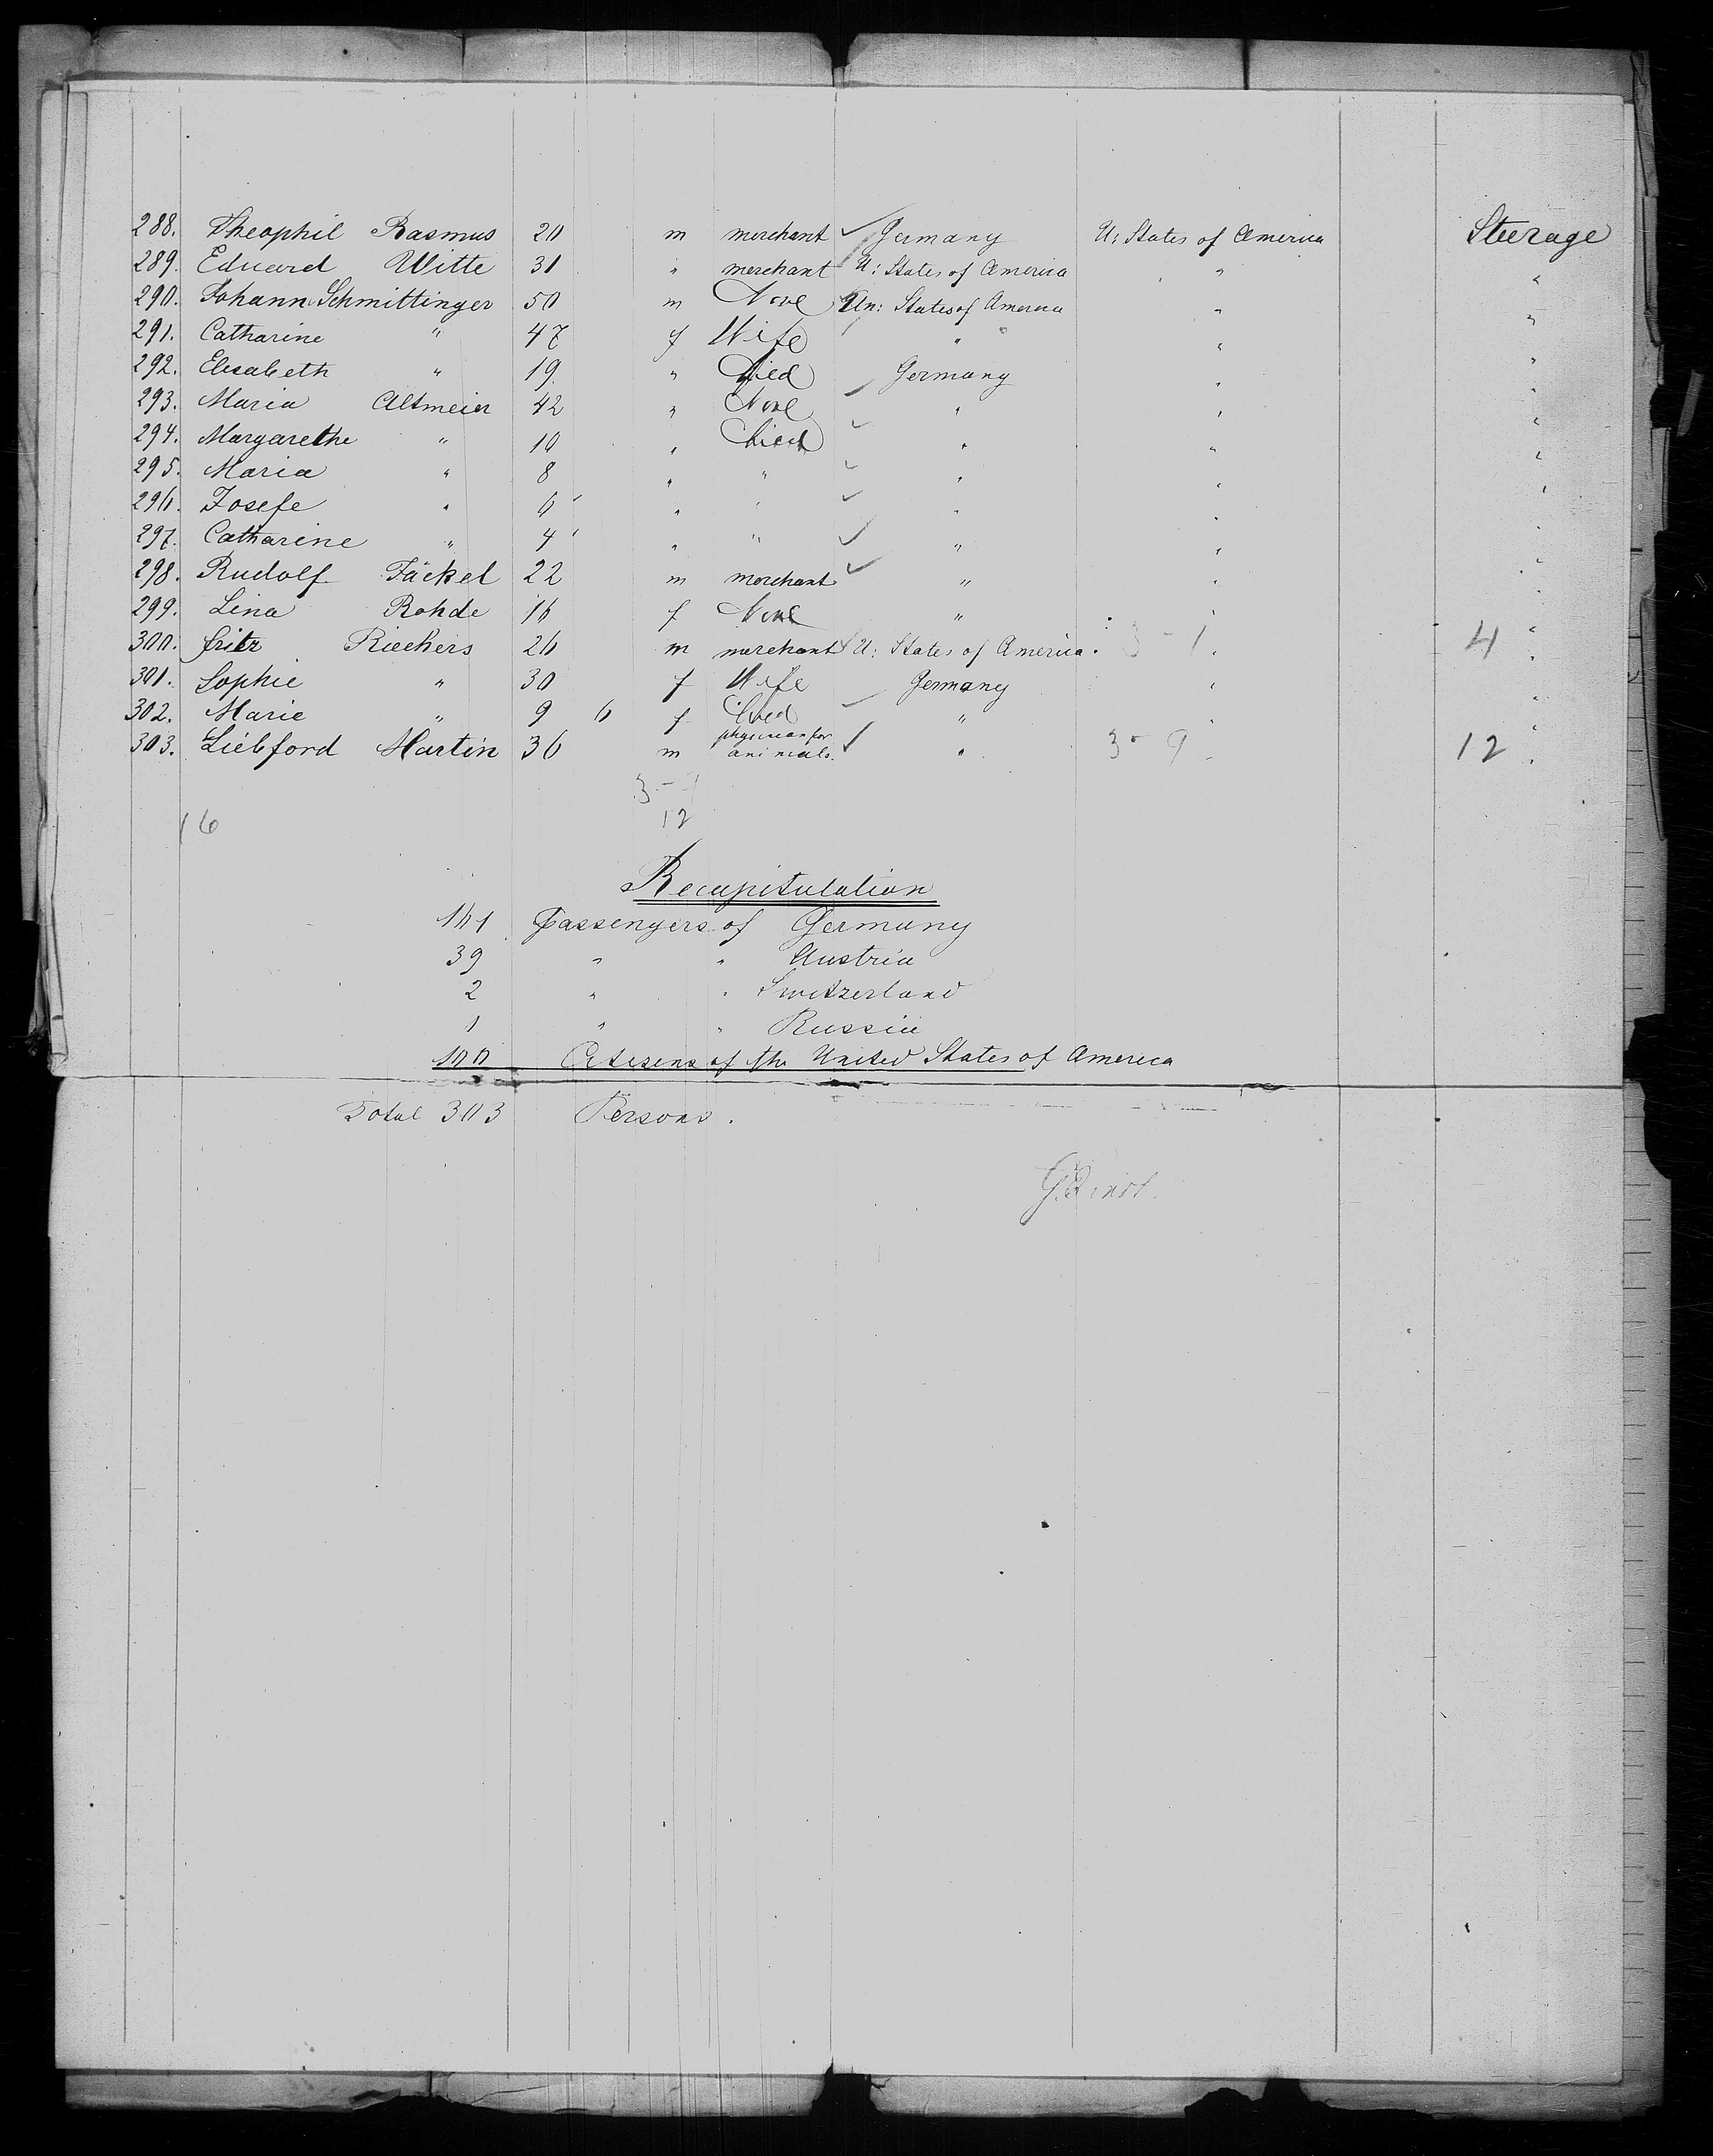 288. Theophil Rasmus 20 m merchant Germany U: States of America Steerage
289. Eduard Witte 31 " merchant U: States of America " "
290. Johann Schmittinger 50 m None Un: States of America " "
291. Catharine " 47 f Wife " " "
292. Elisabeth " 19 " Child Germany " "
293. Maria Altmeier 42 " None " " "
294. Margarethe " 10 " Child " " "
295. Maria " 8 " " " " "
296. Josefe " 6 " " " " "
297. Catharine " 4 " " " " "
298. Rudolf Jäckel 22 m merchant " " "
299. Lina Rohde 16 f None " " "
300. Fritz Rieckers 26 m merchant U: States of America 3 - 1 " 4 "
301. Sophie " 30 f Wife Germany " "
302. Marie " 9 6 f Child " " "
303. Liebford Martin 36 m physician for animals. " 3 - 9 " 12 "
3 - 9
16 12
Recapitulation
161 Passengers of Germany
39 " " Austria
2 " " Switzerland
1 " " Russia
100 Citizens of the United States of America
Total 303 Persons.